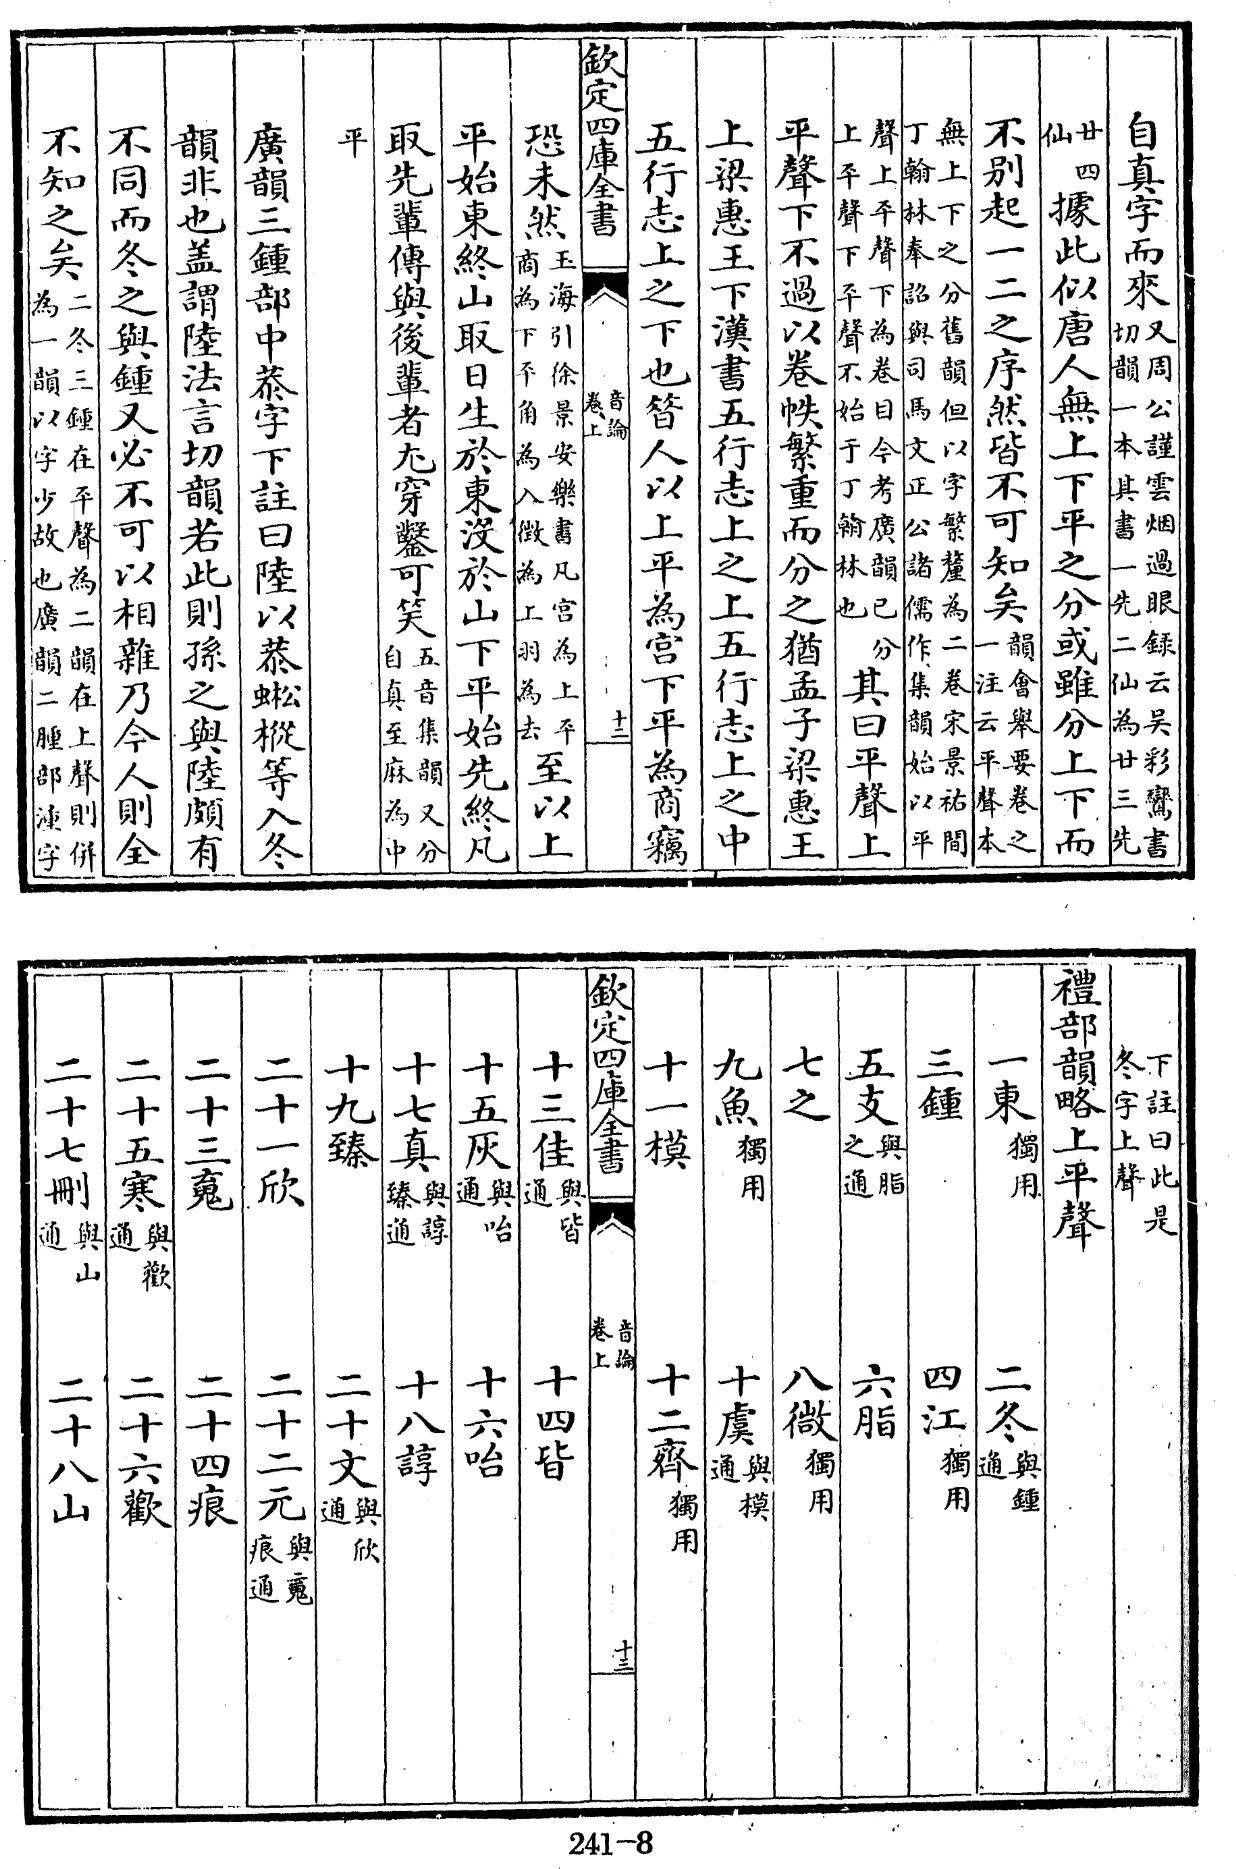 自真字而來又周公謹雲烟過眼録云吳彩鸞書
切韻一本其書一先二仙為廿三先
廿四
仙據此似唐人無上下平之分或雖分上下而
不別起一二之序然皆不可知矣韻會舉要卷之
一注云平聲本
無上下之分舊韻但以字繁釐為二卷宋景祐間
丁翰林奉詔與司馬文正公諸儒作集韻始以平
聲上平聲下為卷目今考廣韻已分
上平聲下平聲不始于丁翰林也其曰平聲上
平聲下不過以卷帙繁重而分之猶孟子梁惠王
上梁惠王下漢書五行志上之上五行志上之中
五行志上之下也昝人以上平為宫下平為商竊
欽定四庫全書
音論
卷上
十二
恐未然玉海引徐景安樂書凡宫為上平
商為下平角為入徵為上羽為去至以上
平始東終山取日生於東沒於山下平始先終凡
取先輩傳與後輩者尤穿鑿可笑五音集韻又分
自真至麻為中
平
廣韻三鍾部中恭字下註曰陸以恭蜙樅等入冬
韻非也盖謂陸法言切韻若此則孫之與陸頗有
不同而冬之與鍾又必不可以相雜乃今人則全
不知之矣二冬三鍾在平聲為二韻在上聲則併
為一韻以字少故也廣韻二腫部湩字
下註曰此是
冬字上聲
禮部韻略上平聲
一東獨用 二冬與鍾通
三鍾 四江獨用
五支與脂之通 六脂
七之 八微獨用
九魚獨用 十虞與模通
十一模 十二齊獨用
欽定四庫全書
音論
卷上
十三
十三佳與皆通 十四皆
十五灰與咍通 十六咍
十七真與諄臻通 十八諄
十九臻 二十文與欣通
二十一欣 二十二元與䰟痕通
二十三䰟 二十四痕
二十五寒與歡通 二十六歡
二十七刪與山通 二十八山
241-8